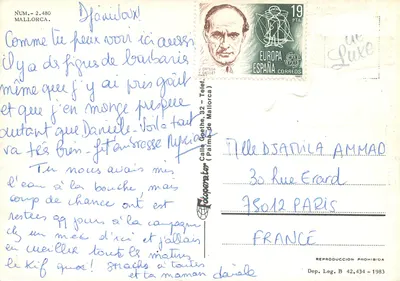 NUM. - 2.480
MALLORCA.
Djamila!
Comme tu peux voir ici aussi
il y a des figues de barbarie
même que j'y ai pris goût
et que j'en mange presque
autant que Danièle. Voilà tout
va très bien. Je t'embrasse
Tu nous avais mis
l'eau à la bouche, mais
coup de chance ont est
restés qq jours à la campagne
chez un mec d'ici et j'allais
en cueillir toute les matins
le kif quoi! Smacks à toutes
et ta maman danièle
Calle Goethe, 32 - Telef.
(Palma de Mallorca)
REPRODUCCION PROHIBIDA
Dep. Leg. B 42,434 - 1983
19
EUROPA
ESPAÑA
CORREOS
un
Luxe
Mlle DJAMILA AMMAD
30 Rue Erard
75012 PARIS
FRANCE